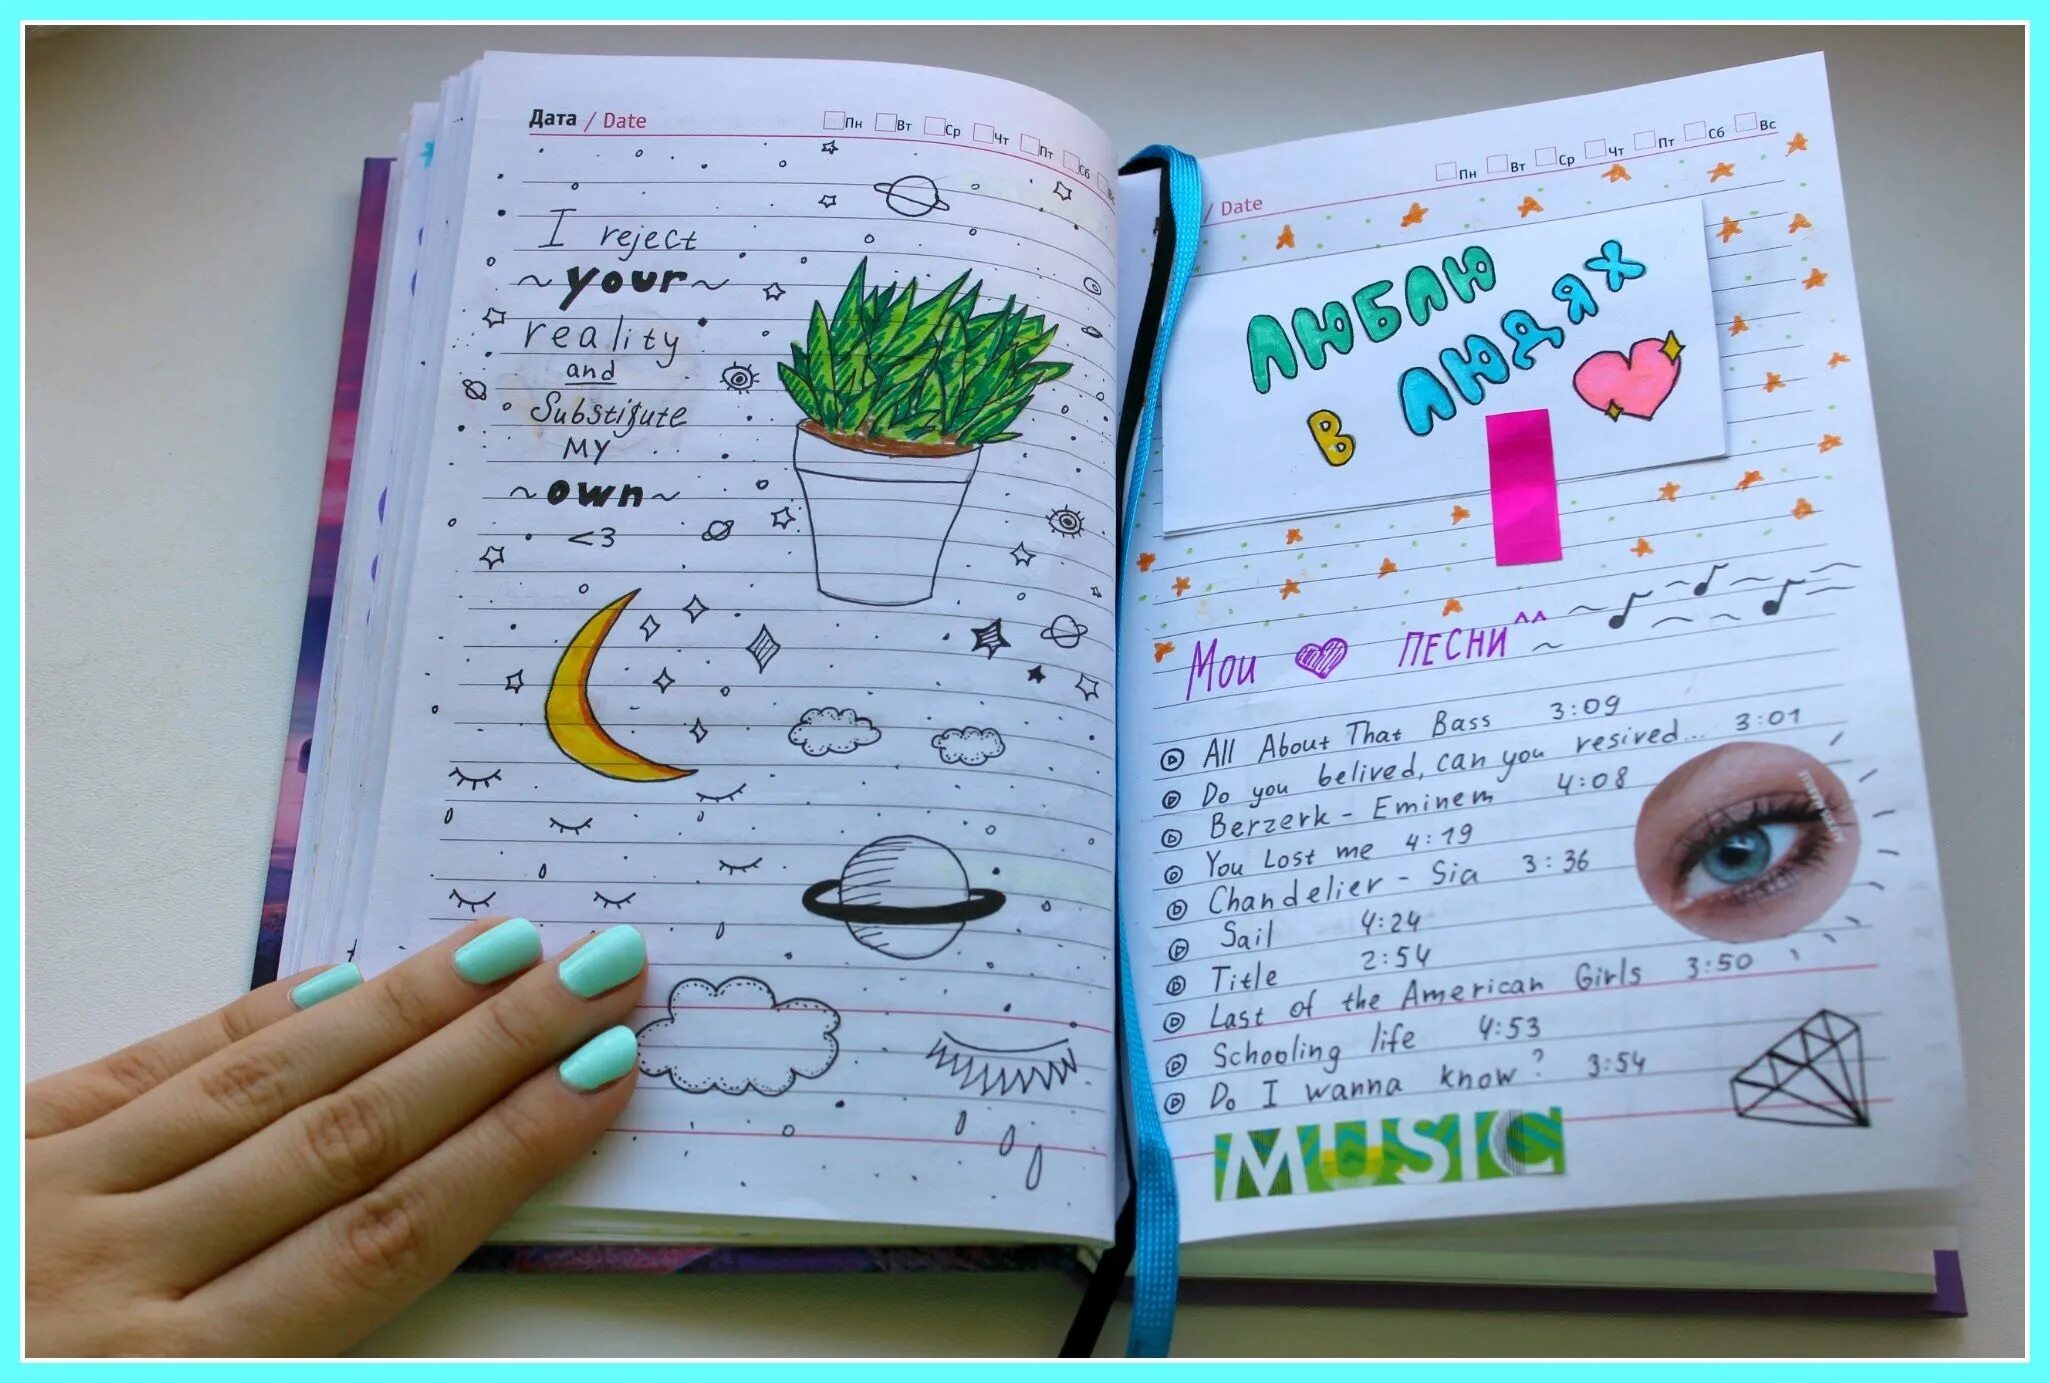 Дата / Date
Пн Вт Ср Чт Пт Сб
I reject
~your~
reality
and
Substitute
MY
~own~
<3
/ Date
Пн Вт Ср Чт Пт Сб Вс
ЛЮБЛЮ
В ЛЮДЯХ
Мои ПЕСНИ ^^
All About That Bass 3:09
Do you belived, can you resired... 3:01
Berzerk - Eminem 4:08
You Lost me 4:19
Chandelier - Sia 3:36
Sail 4:24
Title 2:54
Last of the American Girls 3:50
Schooling life 4:53
Do I wanna know? 3:54
MUSIC